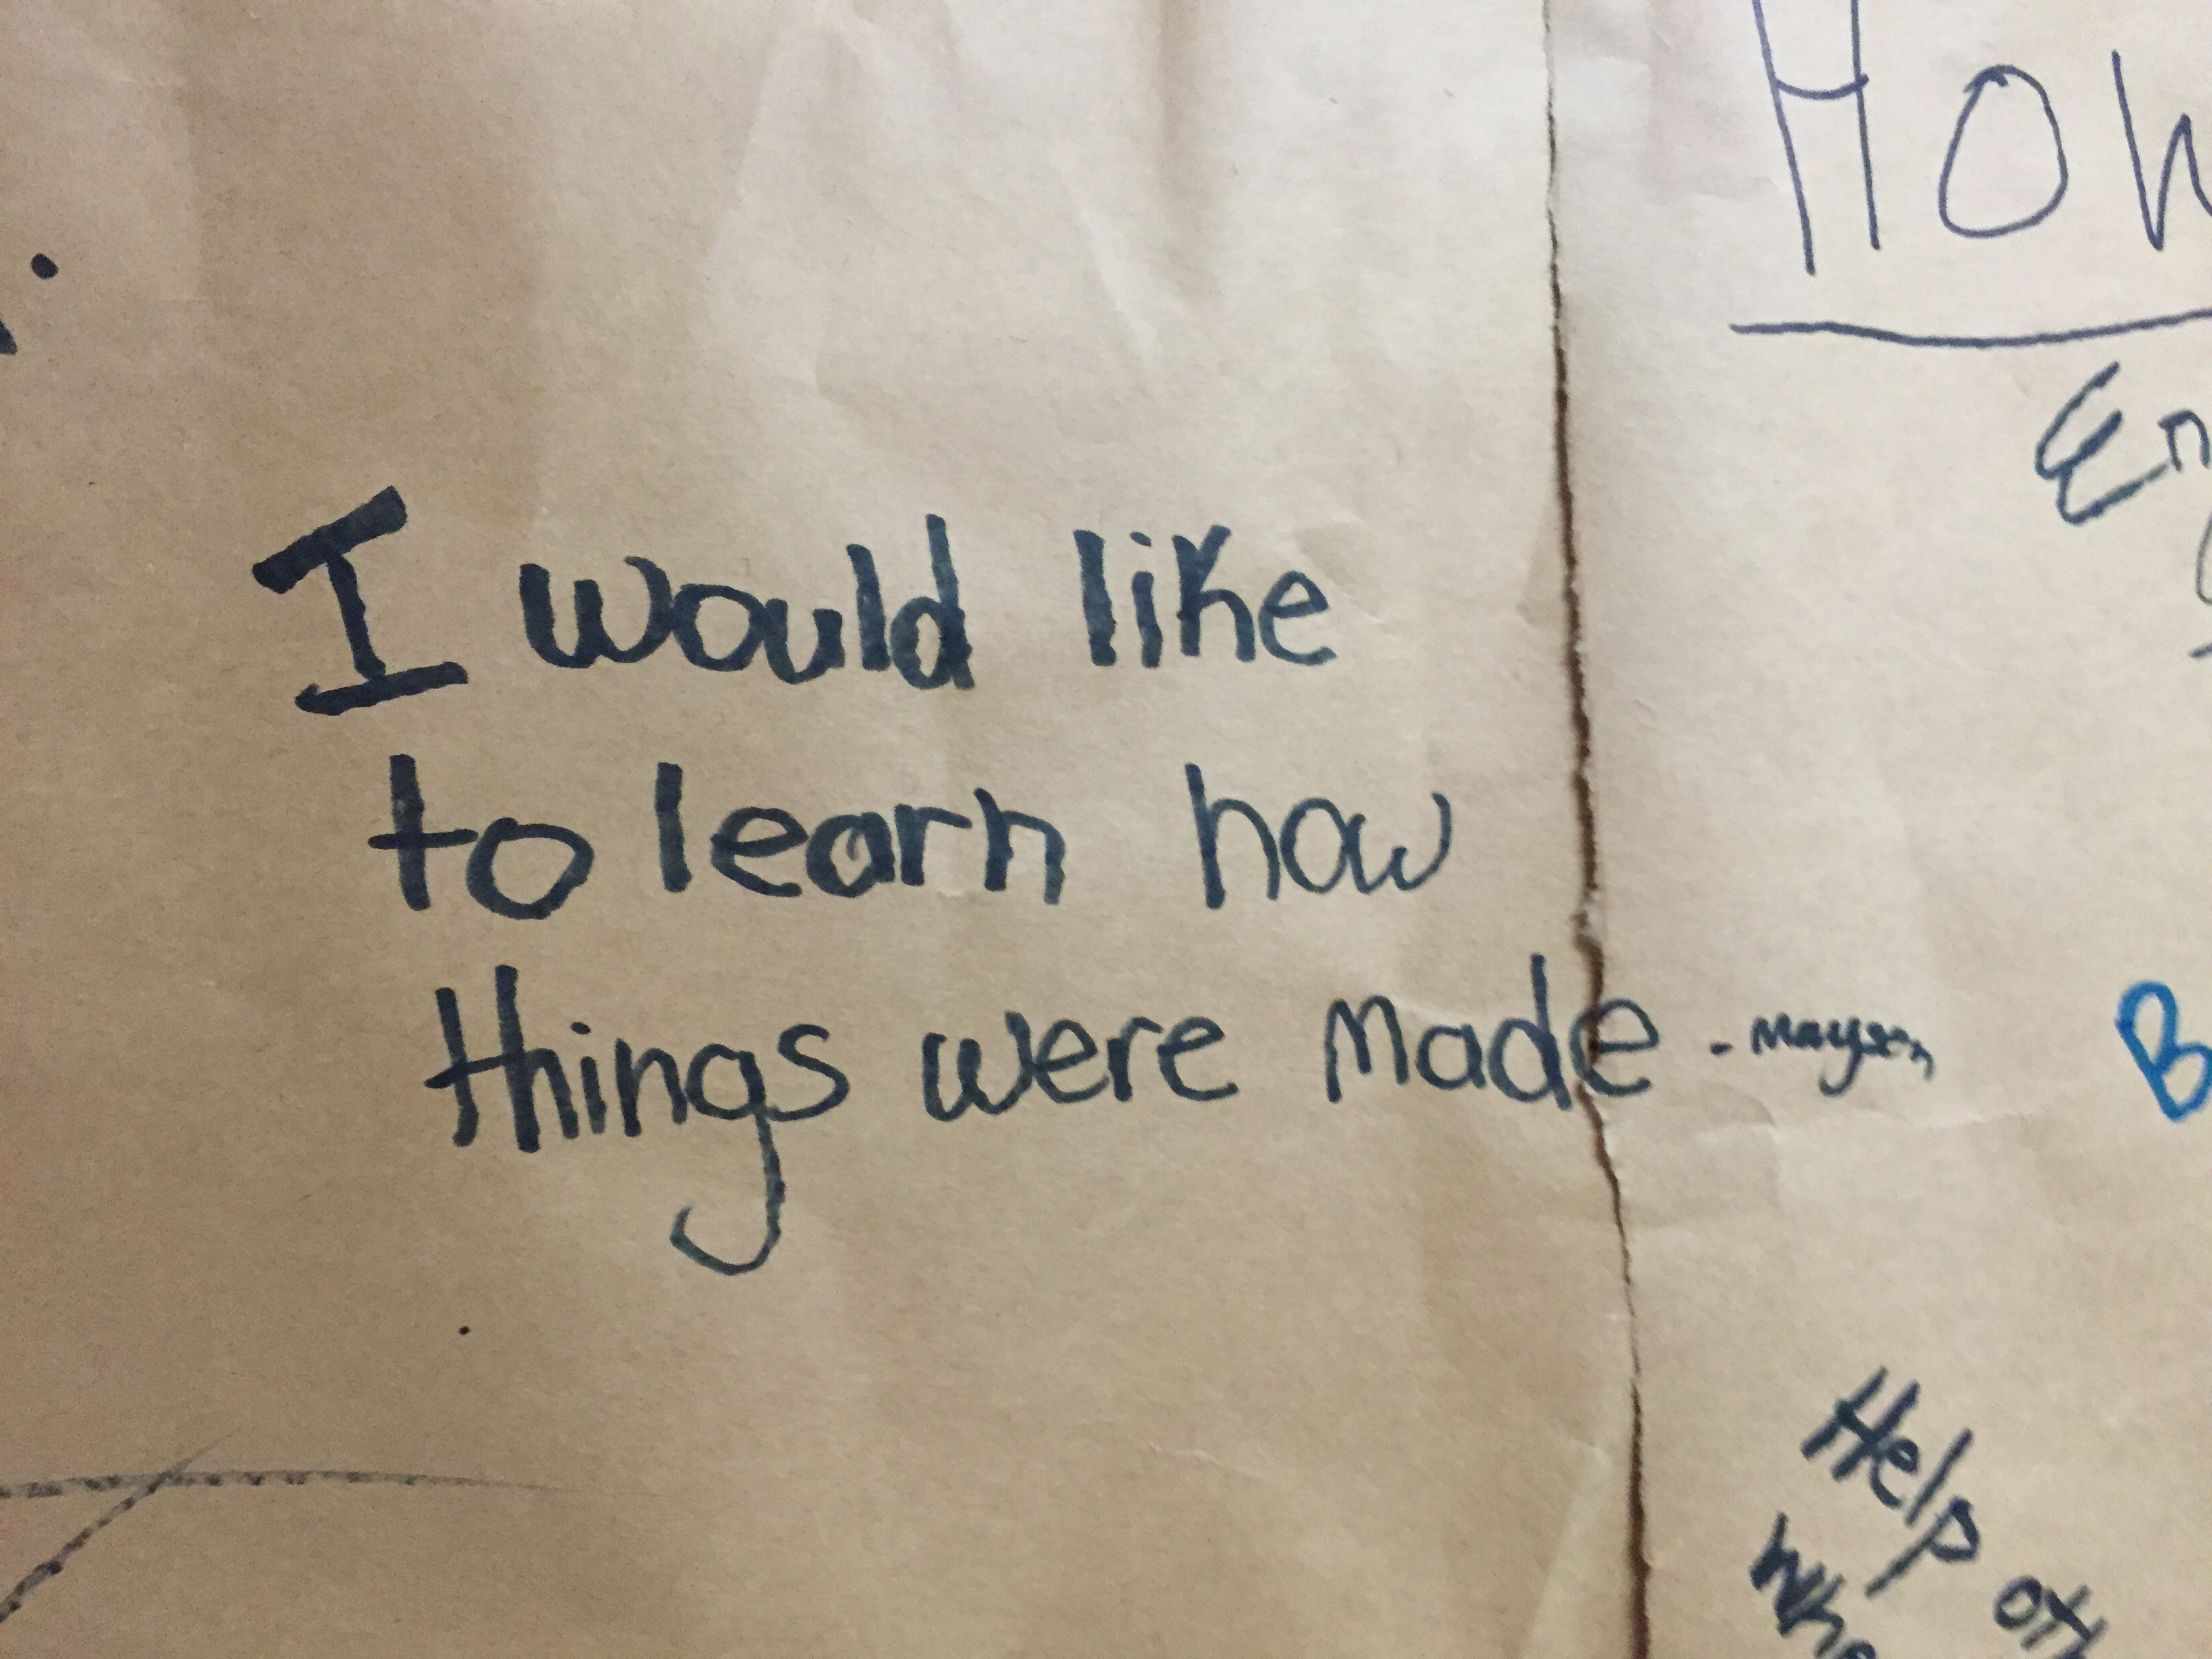 How
I would like
to learn how
things were made - Maysen
Help oth